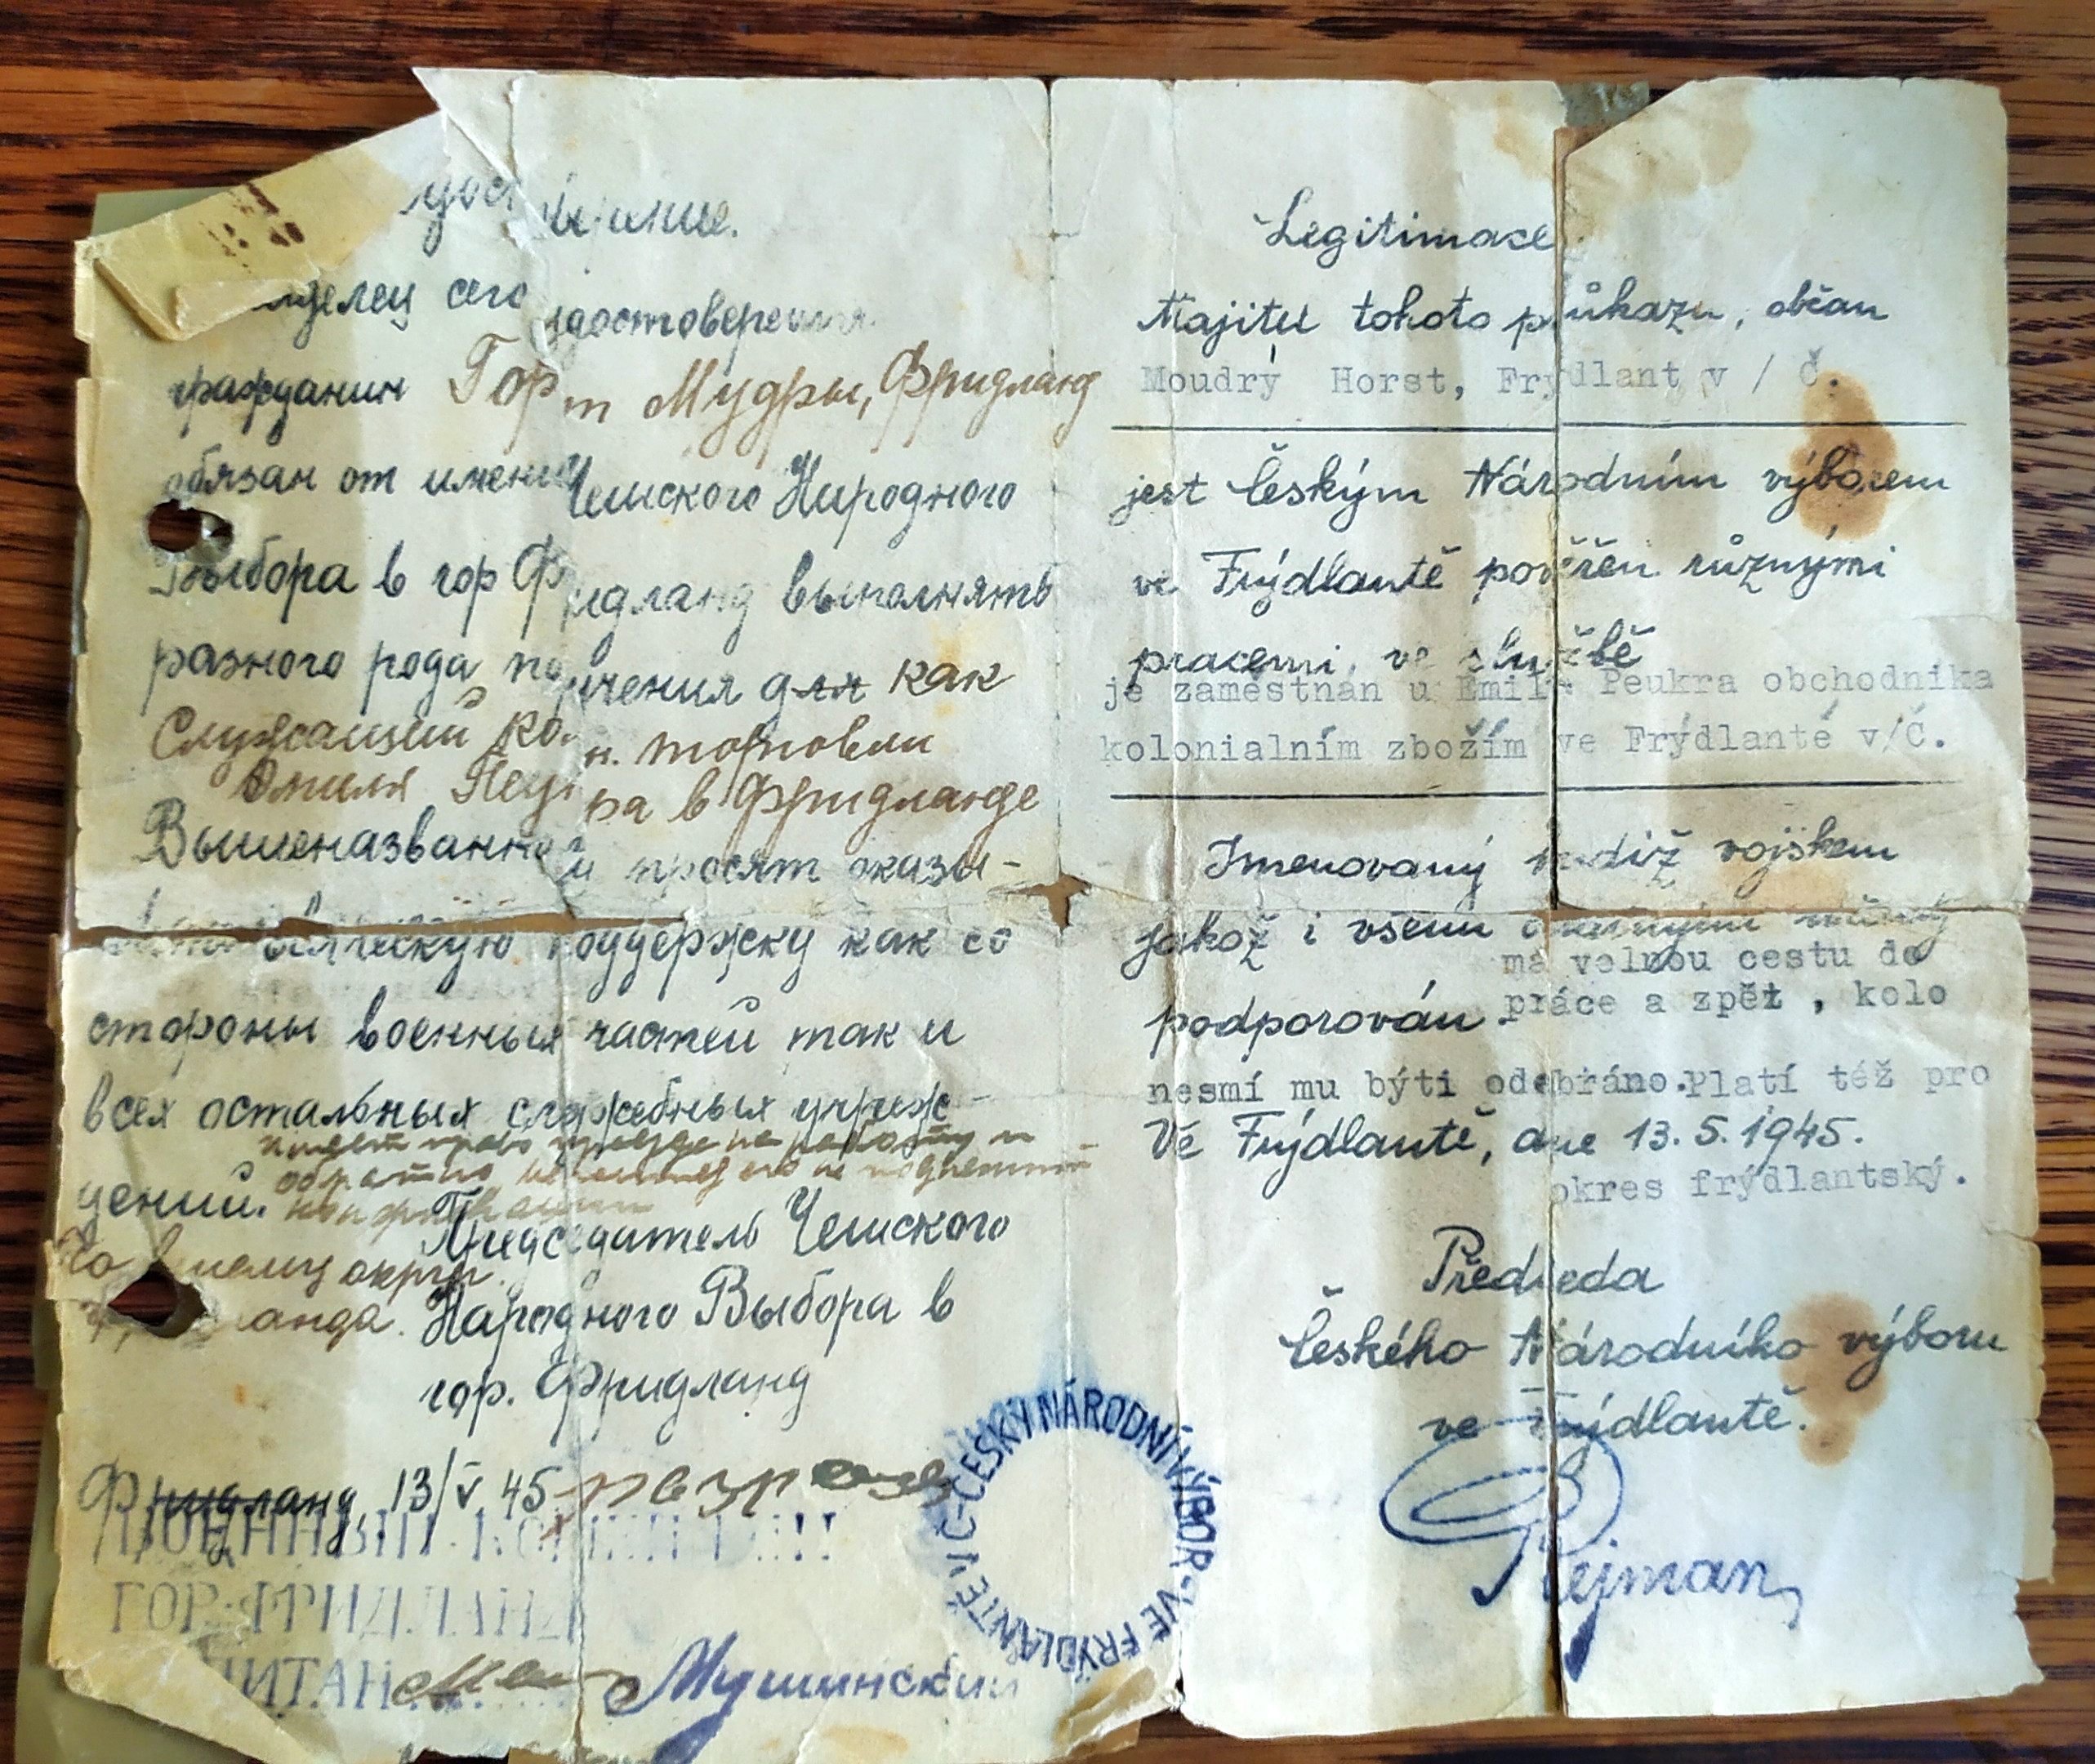 удостоверение.
владелец сего удостоверения
гражданин Горст Мудры, Фридланд
обязан от имени Чешского Народного
Выбора в гор Фридланд выполнять
разного рода поручения для как
Служащий кол. торговли
Эмиля Пеукра в Фридланде
Вышеназванному просят оказы-
вать всяческую поддержку как со
стороны военных частей так и
всех остальных служебных учреж-
имеет право проезда на работу и
обратно, его не подлежит
дений. конфискации
По всему округу
Фридланда.
Председатель Чешского
Народного Выбора в
гор. Фридланд
Фридланд, 13/V 45
ВОЕННЫЙ КОМЕНДАНТ
ГОР. ФРИДЛАНД
КАПИТАН Мушинский
Legitimace
Majitel tohoto průkazu, občan
Moudrý Horst, Frýdlant v / č.
jest Českým Národním výborem
ve Frýdlantě pověřen různými
pracemi, ve službě
je zaměstnán u Emila Peukra obchodníka
koloniálním zbožím ve Frýdlantě v/Č.
Jmenovaný budiž vojskem
jakož i všemi
má volnou cestu do
podporován. práce a zpět , kolo
nesmí mu býti odebráno.Platí též pro
Ve Frýdlantě, dne 13.5.1945.
okres frýdlantský.
Předseda
Českého Národního výboru
ve Frýdlantě.
ČESKÝ NÁRODNÍ VÝBOR - VE FRÝDLANTĚ V Č -
Rejman